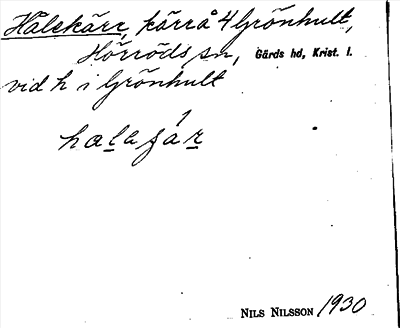 Hålekärr, kärr å 4 Grönhult,
Hörröds sn, Gärds hd, Krist. l.
vid h i Grönhult
NILS NILSSON 1930